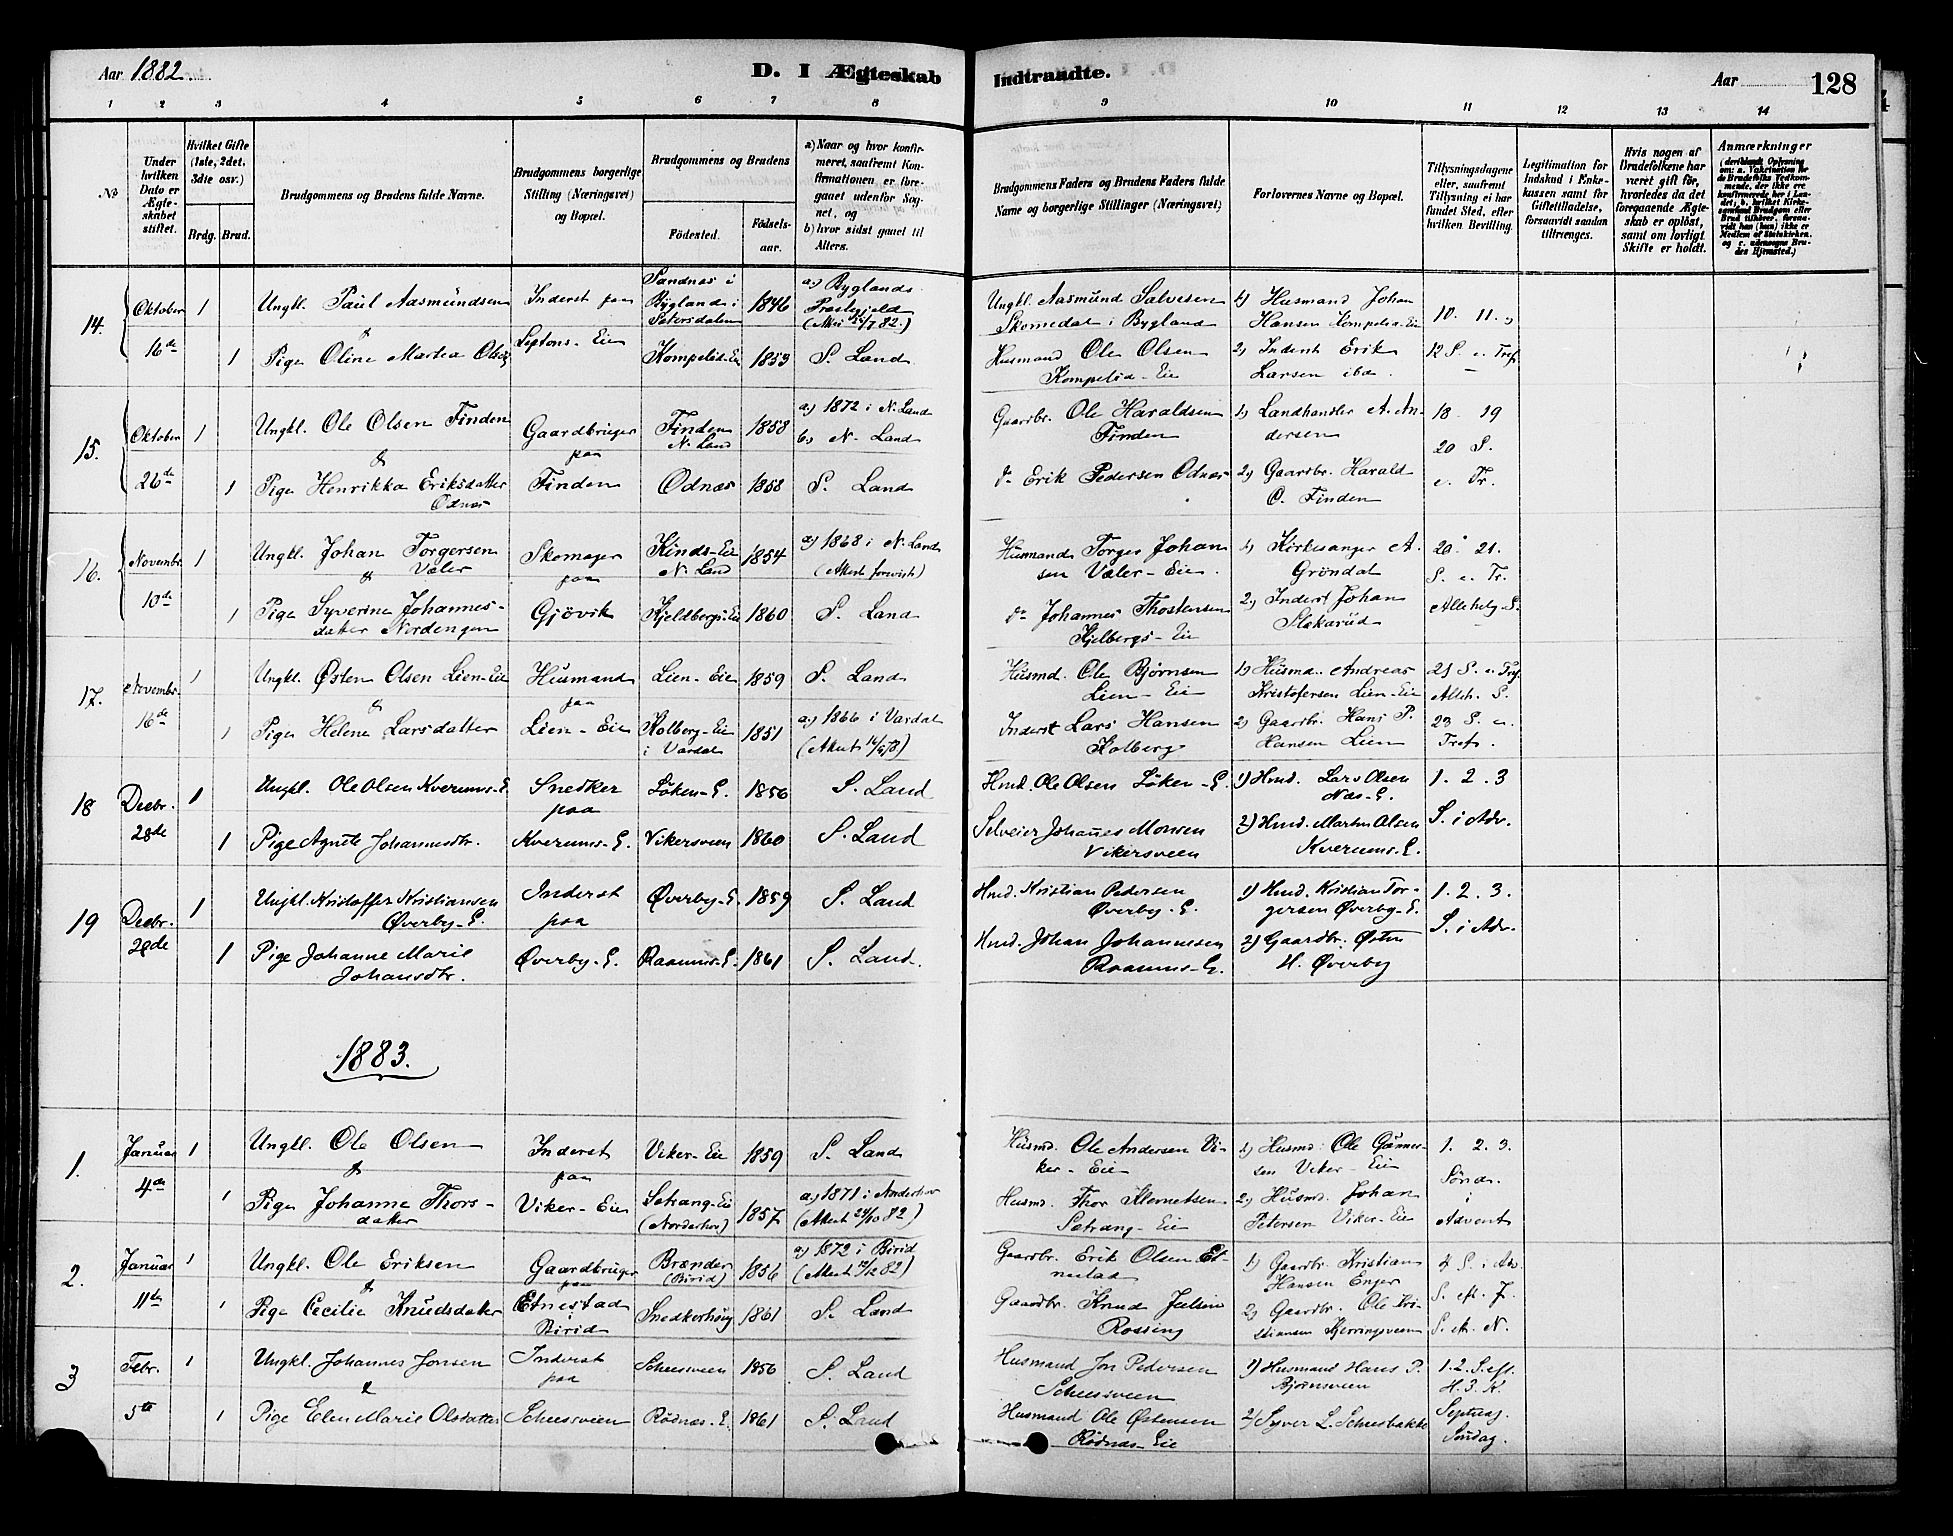 Aar 1882. D. I Ægteskab Indtraadte. Aar 128
1 2 3 4 5 6 7 8 9 10 11 12 13 14
№
Under hvilken Dato er Ægteskabet stiftet.
Hvilket Gifte (1ste, 2det, 3die osv.)
Brdg. Brud.
Brudgommens og Brudens fulde Navne.
Brudgommens borgerlige Stilling (Næringsvei) og Bopæl.
Brudgommens og Brudens
Fødested. Fødselsaar.
a) Naar og hvor konfirmeret, saafremt Konfirmationen er foregaaet udenfor Sognet, og
b) hvor sidst gaaet til Alters.
Brudgommens Faders og Brudens Faders fulde Navne og borgerlige Stillinger (Næringsvei)
Forlovernes Navne og Bopæl.
Tillysningsdagene eller, saafremt Tillysning ei har fundet Sted, efter hvilken Bevilling.
Legitimation for Indskud i Enkekassen samt for Giftetilladelse, forsaavidt saadan tiltrænges.
Hvis nogen af Brudefolkene har været gift før, hvorledes da det foregaaende Ægteskab er opløst, samt om lovligt Skifte er holdt.
Anmærkninger
14. Oktober 16de
1 Ungkl. Paul Aasmundsen Inderst paa Sandnæs i Bygland i Setersdalen 1846 a) Byglands Præstegjeld
Ungkl. Aasmund Salvesen Skomedal i Bygland 1) Husmand Johan Hansen Kompelid-Eie 10. 11. &
&
1 Pige Oline Martea Olsd. Leptons-Eie Kompelid-Eie 1853 S. Land
Husmand Ole Olsen Kompelid-Eie 2) Inderst Erik Larsen ibd. 12 S. e. Tref.
15. Oktober 26de
1 Ungkl. Ole Olsen Finden Gaardbruger paa Finden N. Land 1858 a) 1872 i N. Land b) N. Land
Gaardbr. Ole Haraldsen Finden 1) Landhandler A. Andersen 18 19
&
1 Pige Henrikka Eriksdatter Odnæs Finden Odnæs 1858 S. Land
do Erik Pedersen Odnæs 2) Gaardbr. Harald O. Finden 20 S. e. Tr.
16. Novembr. 10de
1 Ungkl. Johan Torgersen Væler Skomager paa Kinds-Eie N. Land 1854 a) 1868 i N. Land (Attest forevist)
Husmand Torger Johansen Væler-Eie. 1) Kirkesanger A. Gröndal 20. 21. S. e. Tr.
&
1 Pige Syverine Johannesdatter Nordengen Gjövik Kjeldbergs-Eie 1860 S. Land
do Johannes Thostensen Kjelbergs-Eie 2) Inderst Johan Slakarud Allehelg. S.
17. Novembr. 16de
1 Ungkl. Østen Olsen Lien-Eie Husmand paa Lien-Eie 1859 S. Land
Husmd. Ole Bjørnsen Lien-Eie 1) Husmd. Andreas Kristofersen Lien-Eie 21 S. e. Tref. Alleh. S.
&
1 Pige Helene Larsdatter Lien-Eie Kolberg-Eie i Vardal 1851 a) 1866 i Vardal
Inderst Lars Hansen Kolberg 2) Gaardbr. Hans P. Hansen Lien 23 S. e. Tref.
18 Decbr. 28de
1 Ungkl. Ole Olsen Kverums-E. Snedker paa Løken-E. 1856 S. Land
Hmd. Ole Olsen Løken-E. 1) Hmd. Lars Olsen Næs-E. 1. 2. 3
1 Pige Agnete Johannesdtr. Kverums-E. Vikersveen 1860 S. Land
Selveier Johannes Monsen Vikersveen 2) Hmd. Martin Olsen Kverums-E. S. i Adv.
19 Decbr. 28de
1 Ungkl. Kristoffer Kristiansen Øverby-E. Inderst paa Øverby-E. 1859 S. Land
Hmd. Kristian Pedersen Øverby-E. 1) Hmd. Kristian Torgersen Øverby-E. 1. 2. 3.
1 Pige Johanne Marie Johansdtr. Øverby-E. Raaums-E. 1861 S. Land.
Hmd. Johan Johannesen Raaums-E. 2) Gaardbr. Østen H. Øverby S. i Adv.
1883.
1. Januar 4de
1 Ungkl. Ole Olsen Inderst paa Viker-Eie 1859 S. Land
Husmd. Ole Andersen Viker-Eie 1) Husmd. Ole Gunnersen Viker-Eie 1. 2. 3.
&
1 Pige Johanne Thorsdatter Viker-Eie Setrang-Eie (Norderhov) 1857 a) 1871 i Norderhov (Attest 24/10 82)
Husmd. Thor Klemetsen Setrang-Eie 2) Husmd. Johan Petersen Viker-Eie Sönd. i Advent
2. Januar 11de
1 Ungkl. Ole Eriksen Gaardbruger paa Brænder (Birid) 1856 a) 1872 i Birid (Attest 12/12 82)
Gaardbr. Erik Olsen Etnestad 1) Gaardbr. Kristian Hansen Enger 4 S. i Adv.
&
1 Pige Cecilie Knudsdatter Etnestad Birid Snedkerhaug 1861 S. Land
Gaardbr. Knud Julsen Rossing 2) Gaardbr. Ole Kristiansen Kjerringsveen S. eft. J. S. e. N.
3 Febr. 5te
1 Ungkl. Johannes Jonsen Inderst paa Scheesveen 1856 S. Land
Husmand Jon Pedersen Scheesveen 1) Husmand Hans P. Björnsveen 1. 2. S. eft. H. 3. K.
&
1 Pige Elen Marie Olsdatter Scheesveien Rödnæs-E. 1861 S. Land
Husmand Ole Østensen Rödnæs-Eie 2) Syver L. Scheesbakke Septuag. Søndag.